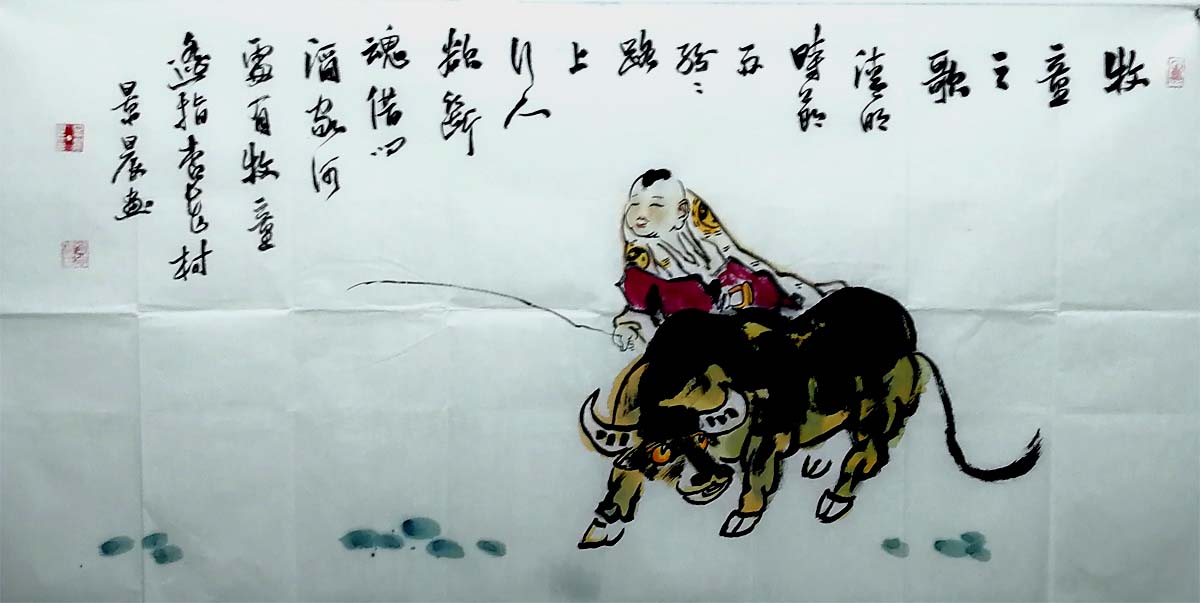 牧
童
之
歌
清明
時節
雨
紛々
路
上
行人
欲斷
魂借问
酒家何
處有牧童
遥指杏花村
景晨画